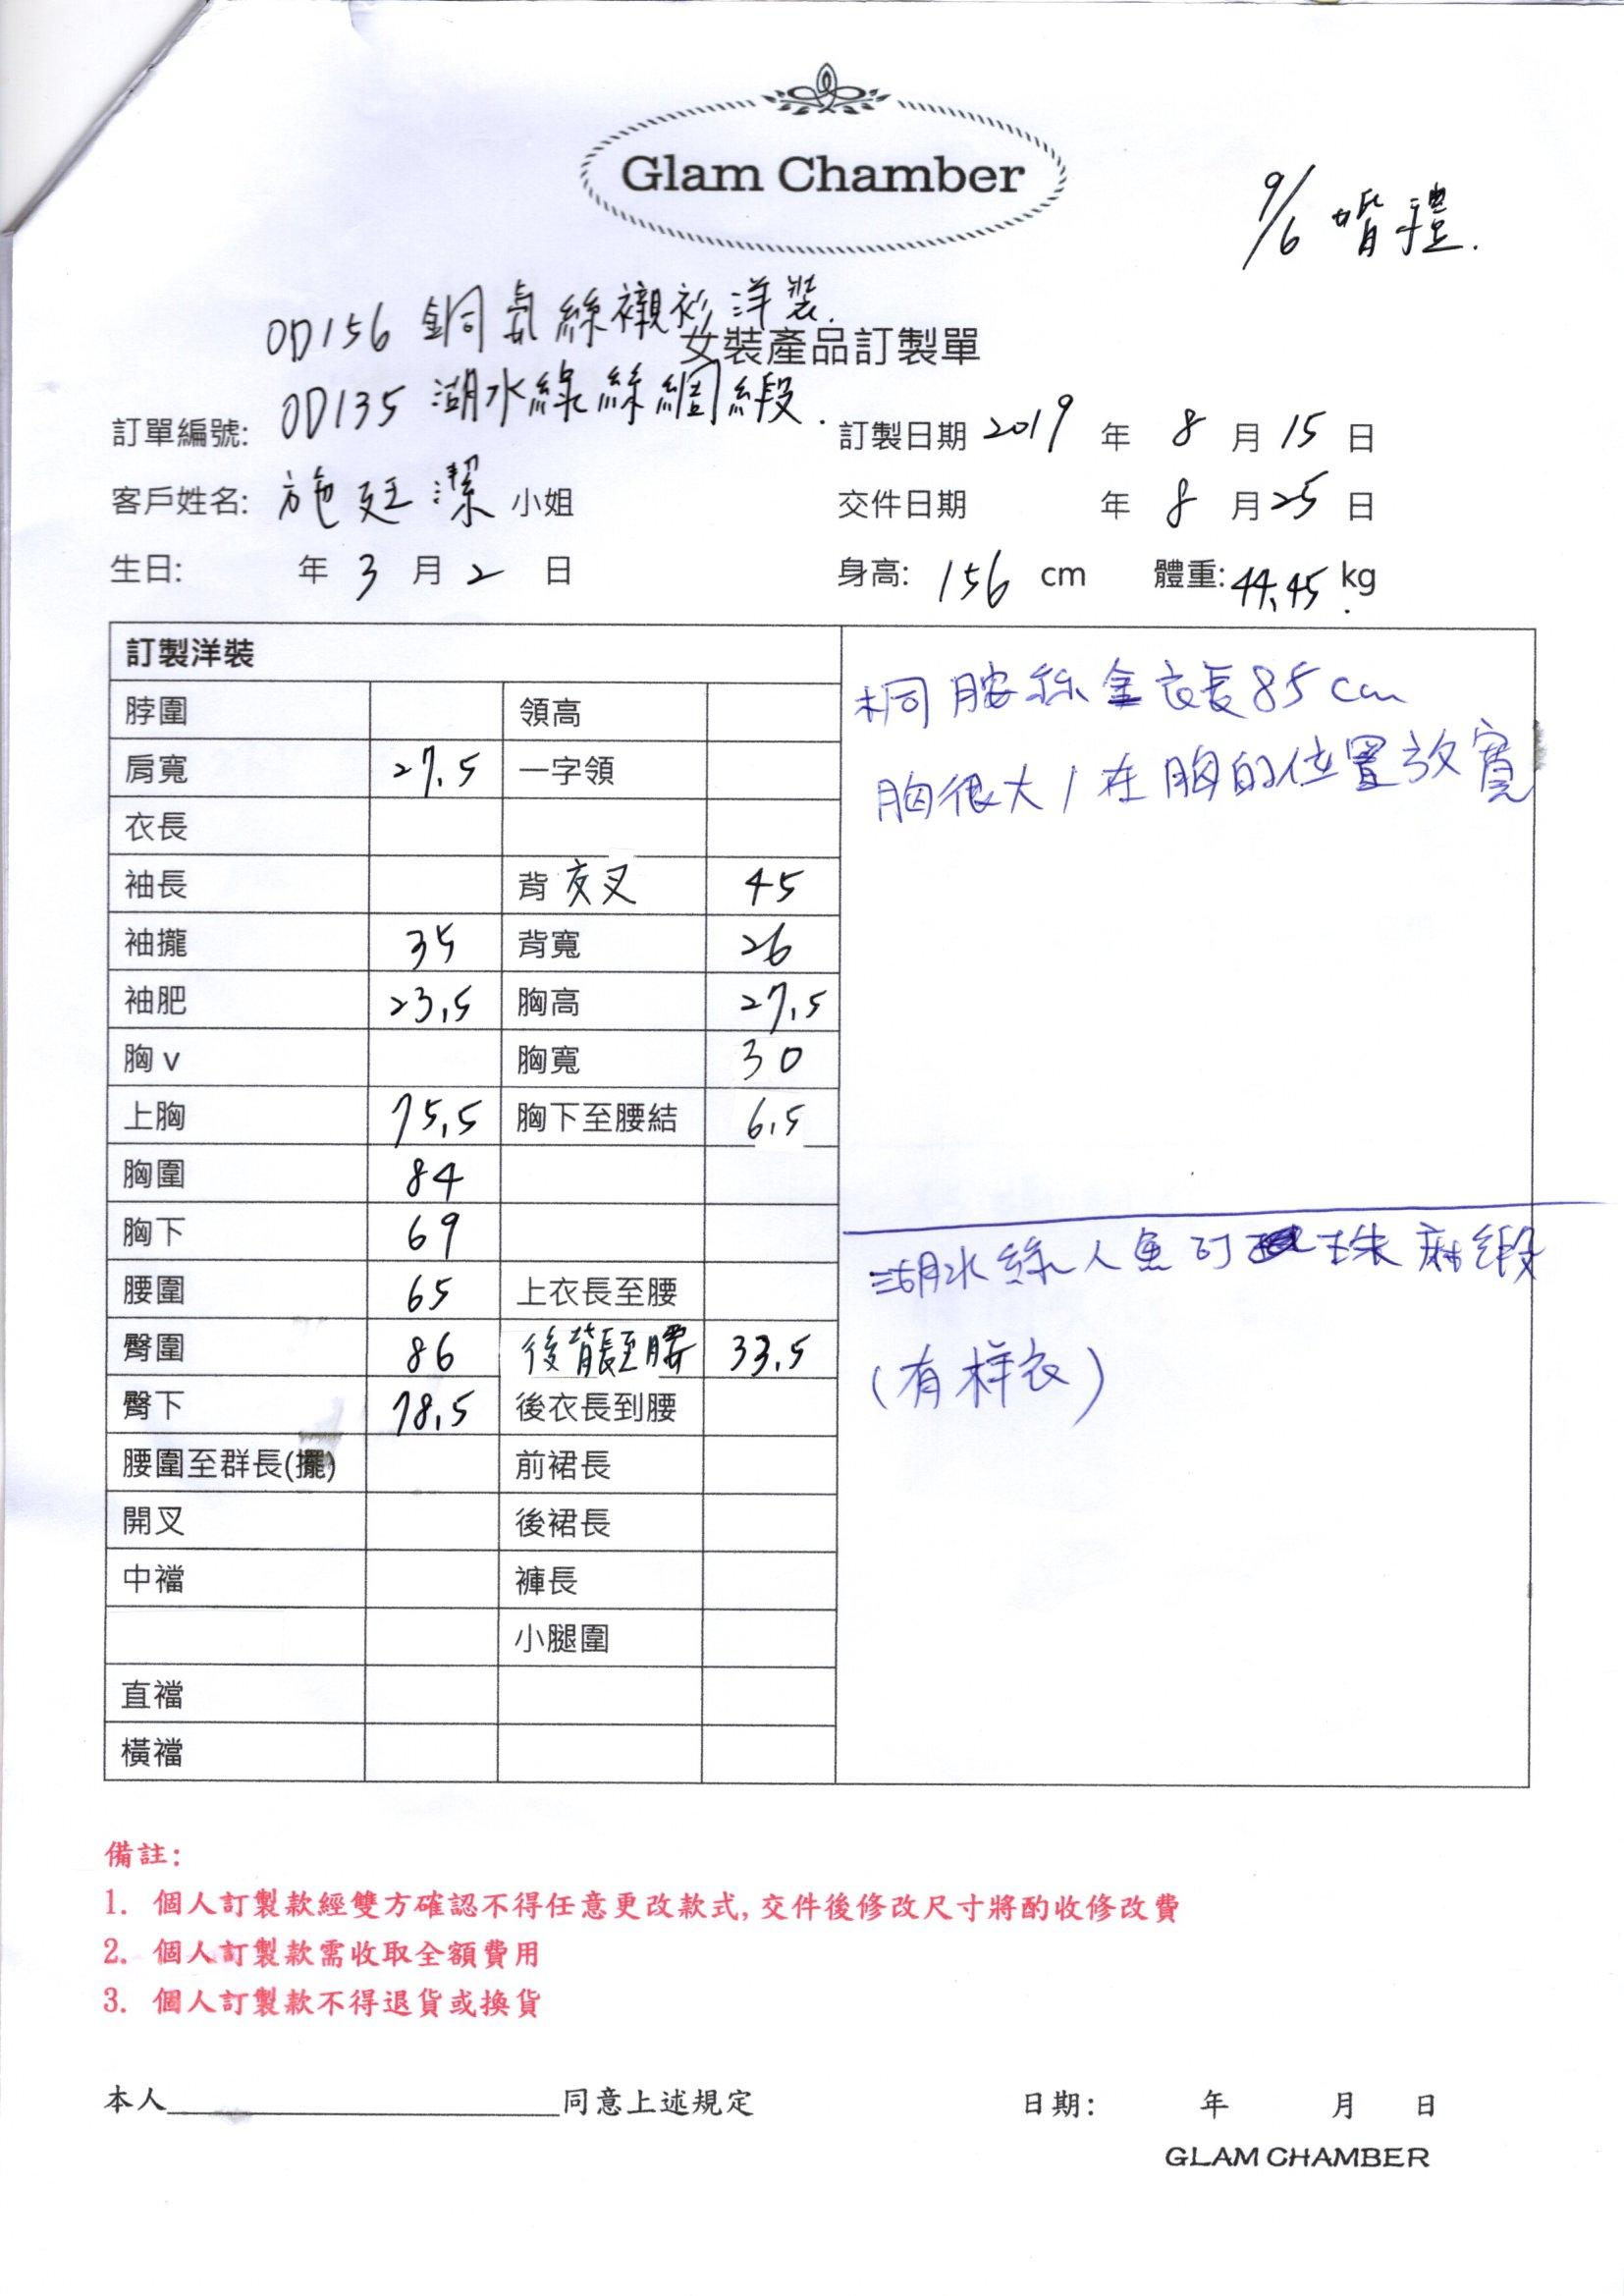 Glam Chamber
9/6 婚禮.
OD156 銅氨絲襯衫洋裝.
女裝產品訂製單
OD135 湖水綠絲綢緞.
訂單編號: 訂製日期 2019 年 8 月 15 日
客戶姓名: 施廷潔 小姐 交件日期 年 8 月 25 日
生日: 年 3 月 2 日 身高: 156 cm 體重: 44.45 kg
訂製洋裝
脖圍 領高
肩寬 27.5 一字領
衣長
袖長 背交叉 45
袖攏 35 背寬 26
袖肥 23.5 胸高 27.5
胸 v 胸寬 30
上胸 75.5 胸下至腰結 6.5
胸圍 84
胸下 69
腰圍 65 上衣長至腰
臀圍 86 後背長至腰 33.5
臀下 78.5 後衣長到腰
腰圍至群長(擺) 前裙長
開叉 後裙長
中襠 褲長
小腿圍
直襠
橫襠
桐胺絲全衣長85cm
胸很大/在胸的位置放寬
湖水絲人魚 珠麻緞
(有样衣)
備註:
1. 個人訂製款經雙方確認不得任意更改款式,交件後修改尺寸將酌收修改費
2. 個人訂製款需收取全額費用
3. 個人訂製款不得退貨或換貨
本人 同意上述規定 日期: 年 月 日
GLAM CHAMBER